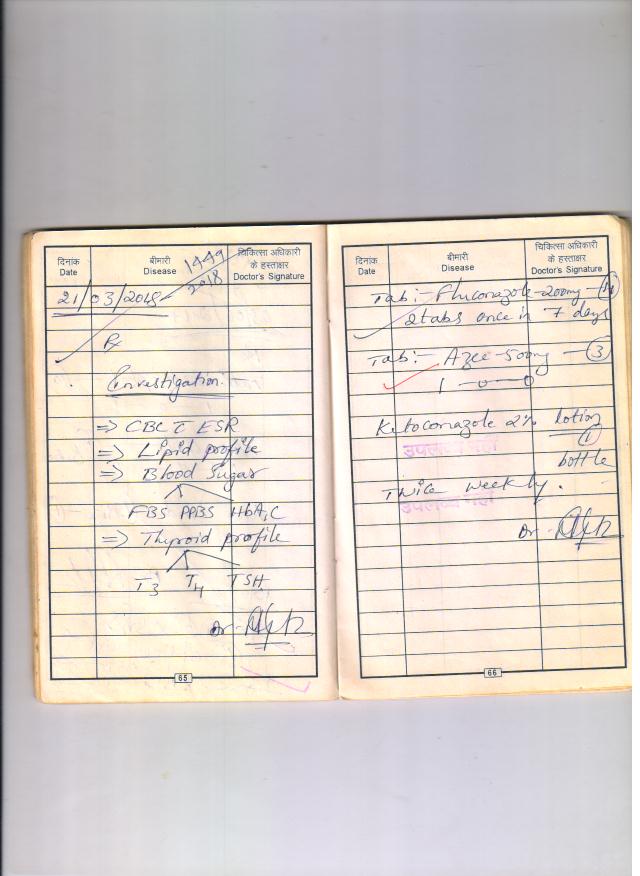 दिनांक
Date
बीमारी
Disease
चिकित्सा अधिकारी
के हस्ताक्षर
Doctor's Signature
1449
2018
21/03/2018
Rx
Investigation:
=> CBC c̄ ESR
=> Lipid profile
=> Blood Sugar
FBS PPBS HbA1C
=> Thyroid profile
T3 T4 TSH
Dr.
65
दिनांक
Date
बीमारी
Disease
चिकित्सा अधिकारी
के हस्ताक्षर
Doctor's Signature
Tab:- Fluconazole-200mg -
2tabs once in 7 days
Tab:- Azee-500mg - 3
1-0-0
Ketoconazole 2% lotion
1
bottle
उपलब्ध नहीं
Twice weekly.
उपलब्ध नहीं
Dr.
66